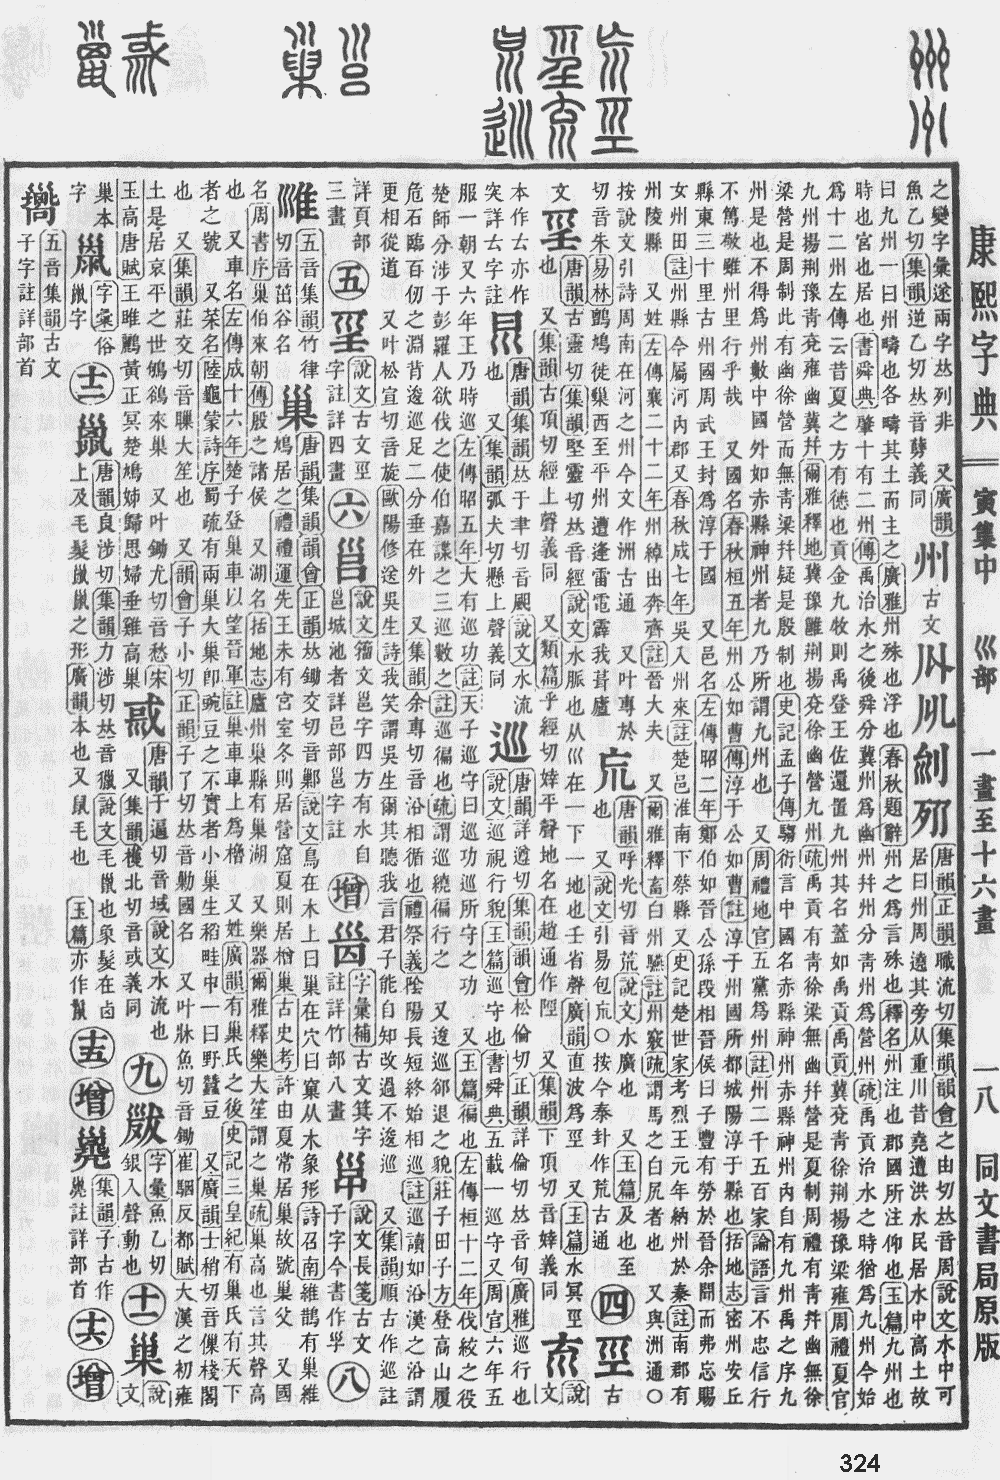 康熙字典 寅集中 巛部 一畫至十六畫 一八 同文書局原版
之變字彙逡兩字𠀤列非 又廣韻
魚乙切集韻逆乙切𠀤音㔎義同
州 古文
唐韻正韻職流切集韻韻會之由切𠀤音周說文水中可
居曰州周遶其旁从重川昔堯遭洪水民居水中高土故
曰九州一曰州疇也各疇其土而主之廣雅州殊也浮也春秋題辭州之爲言殊也釋名州注也郡國所注仰也玉篇九州也
時也宮也居也書舜典肇十有二州傳禹治水之後舜分冀州爲幽州幷州分青州爲營州疏禹貢治水之時猶爲九州今始
爲十二州左傳云昔夏之方有德也貢金九牧則禹登王佐還置九州其名蓋如禹貢禹貢冀兗青徐荆揚豫梁雍周禮夏官
九州揚荆豫青兗雍幽冀幷爾雅釋地冀豫雝荆揚兗徐幽營九州疏禹貢有青徐梁無幽幷營是夏制周禮有青幷幽無徐
梁營是周制此有幽徐營而無青梁幷疑是殷制也史記孟子傳騶衍言中國名赤縣神州赤縣神州內自有九州禹之序九
州是也不得爲州數中國外如赤縣神州者九乃所謂九州也 又周禮地官五黨爲州註州二千五百家論語言不忠信行
不篤敬雖州里行乎哉 又國名春秋桓五年州公如曹傳淳于公如曹註淳于州國所都城陽淳于縣也括地志密州安丘
縣東三十里古州國周武王封爲淳于國 又邑名左傳昭二年鄭伯如晉公孫段相晉侯曰子豐有勞於晉余聞而弗忘賜
女州田註州縣今屬河內郡又春秋成七年吳入州來註楚邑淮南下蔡縣 又史記楚世家考烈王元年納州於秦註南郡有
州陵縣 又姓左傳襄二十二年州綽出奔齊註晉大夫 又爾雅釋畜白州驠註州竅疏謂馬之白尻者也 又與洲通〇
按說文引詩周南在河之州今文作洲古通 又叶專於
切音朱易林鸇鳩徙巢西至平州遭逢雷電霹我葺廬
巟 唐韻呼光切音荒說文水廣也 又玉篇及也至
也 又說文引易包巟〇按今泰卦作荒古通
四
巠 古
文
巠 唐韻古靈切集韻堅靈切𠀤音經說文水脈也从巛在一下一地也壬省聲廣韻直波爲巠 又玉篇水冥巠
也 又集韻古頂切經上聲義同 又類篇乎經切婞平聲地名在趙通作陘 又集韻下頂切音婞義同
㐬 說文
本作𠫓亦作
突詳𠫓字註
唐韻集韻𠀤于聿切音䫻說文水流
也 又集韻弧犬切懸上聲義同
巡 唐韻詳遵切集韻韻會松倫切正韻詳倫切𠀤音旬廣雅巡行也
說文巡視行貌玉篇巡守也書舜典五載一巡守又周官六年五
服一朝又六年王乃時巡左傳昭五年大有巡功註天子巡守曰巡功巡所守之功 又玉篇徧也左傳桓十二年伐絞之役
楚師分涉于彭羅人欲伐之使伯嘉諜之三巡數之註巡徧也疏謂巡繞徧行之 又逡巡郤退之貌莊子田子方登高山履
危石臨百仞之淵背逡巡足二分垂在外 又集韻余專切音沿相循也禮祭義陰陽長短終始相巡註巡讀如沿漢之沿謂
更相從道 又叶松宣切音旋歐陽修送吳生詩我笑謂吳生爾其聽我言君子能自知改過不逡巡 又集韻順古作巡註
詳頁部
三畫
五
巠 說文古文巠
字註詳四畫
六
邕 說文籀文邕字四方有水自
邕城池者詳邑部邕字註
增
字彙補古文箕字
註詳竹部八畫
說文長箋古文
子字今書作孚
八
五音集韻竹律
切音茁谷名
巢 唐韻集韻韻會正韻𠀤鋤交切音鄛說文鳥在木上曰巢在穴曰窠从木象形詩召南維鵲有巢維
鳩居之禮禮運先王未有宮室冬則居營窟夏則居橧巢古史考許由夏常居巢故號巢父 又國
名周書序巢伯來朝傳殷之諸侯 又湖名括地志廬州巢縣有巢湖 又樂器爾雅釋樂大笙謂之巢疏巢高也言其聲高
也 又車名左傳成十六年楚子登巢車以望晉軍註巢車車上爲櫓 又姓廣韻有巢氏之後史記三皇紀有巢氏有天下
者之號 又菜名陸龜蒙詩序蜀疏有兩巢大巢卽豌豆之不實者小巢生稻畦中一曰野蠶豆 又廣韻士稍切音㑿棧閣
也 又集韻莊交切音䫸大笙也 又韻會子小切正韻子了切𠀤音勦國名 又叶牀魚切音鋤崔駰反都賦大漢之初雍
土是居哀平之世鴝鵒來巢 又叶鋤尤切音愁宋
玉高唐賦王雎鸝黃正冥楚鳩姊歸思婦垂雞高巢
唐韻于逼切音域說文水流也
又集韻檴北切音或義同
九
字彙魚乙切
銀入聲動也
十一
巢 說文
巢本
字
字彙俗
巤字
十二
巤 唐韻良涉切集韻力涉切𠀤音獵說文毛巤也象髮在囟
上及毛髮巤巤之形廣韻本也又鼠毛也 玉篇亦作鬛
十五
增
集韻子古作
巤註詳部首
十六
增
五音集韻古文
子字註詳部首
324